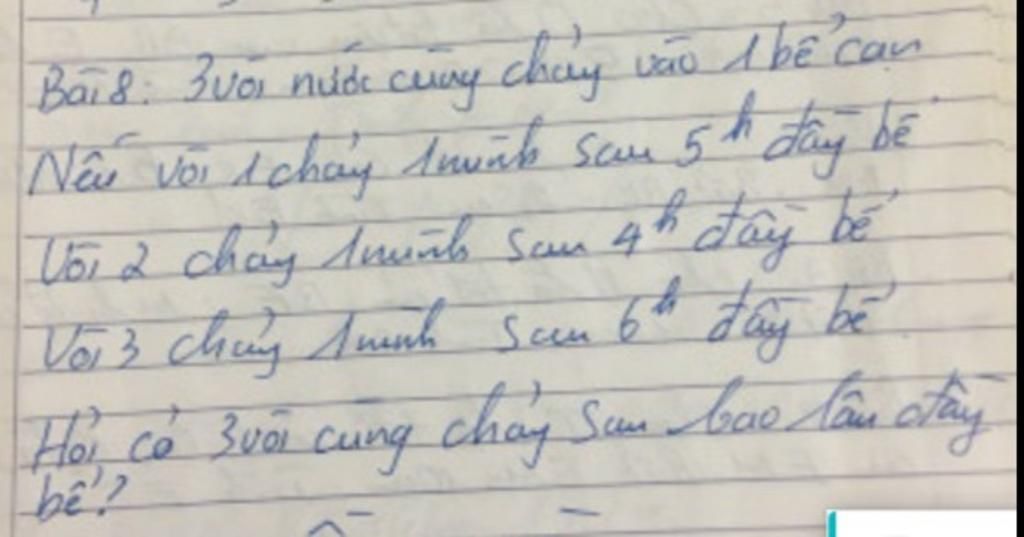 Bài 8: 3 vòi nước cùng chảy vào 1 bể cạn
Nếu vòi 1 chảy 1 mình sau 5h đầy bể
Vòi 2 chảy 1 mình sau 4h đầy bể
Vòi 3 chảy 1 mình sau 6h đầy bể
Hỏi cả 3 vòi cùng chảy sau bao lâu đầy
bể?